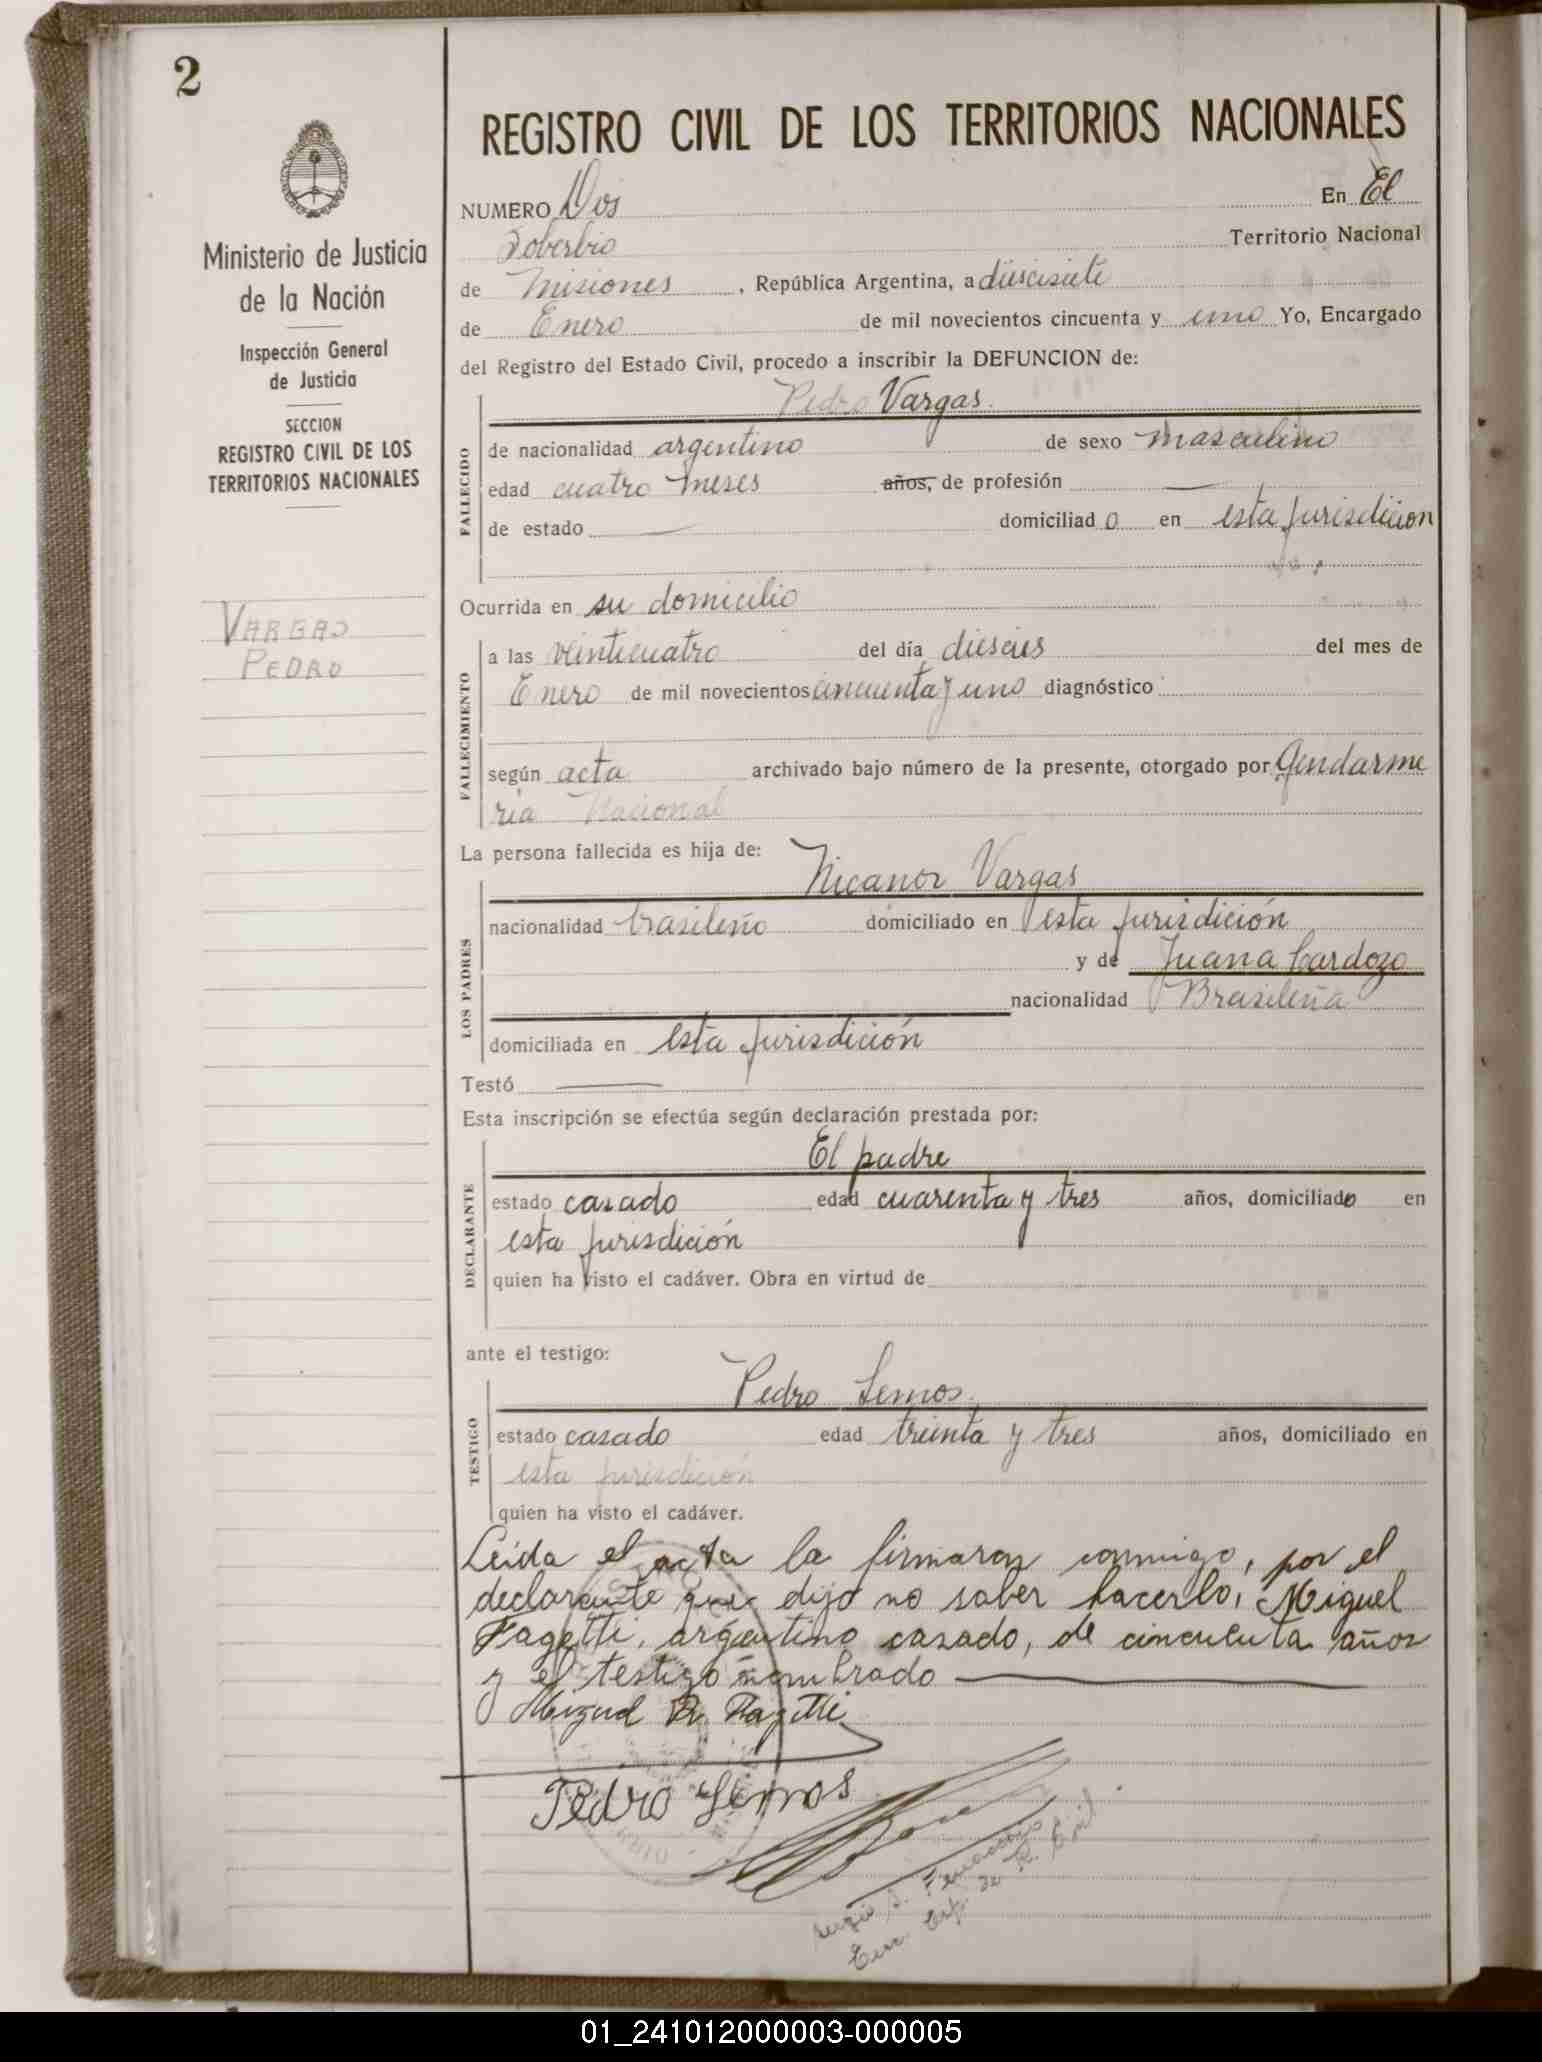 2
REGISTRO CIVIL DE LOS TERRITORIOS NACIONALES
Ministerio de Justicia
de la Nación
Inspección General
de Justicia
SECCION
REGISTRO CIVIL DE LOS
TERRITORIOS NACIONALES
VARGAS
PEDRO
NUMERO Dos En El
Soberbio Territorio Nacional
de Misiones, República Argentina, a diescisiete
de Enero de mil novecientos cincuenta y uno Yo, Encargado
del Registro del Estado Civil, procedo a inscribir la DEFUNCION de:
Pedro Vargas.
FALLECIDO
de nacionalidad argentino de sexo masculino
edad cuatro meses años, de profesión —
de estado — domiciliado en esta jurisdicion
Ocurrida en su domicilio
FALLECIMIENTO
a las veinticuatro del día diescies del mes de
Enero de mil novecientos cincuenta y uno diagnóstico
según acta archivado bajo número de la presente, otorgado por Gendarme
ria Nacional
La persona fallecida es hija de:
Nicanor Vargas
LOS PADRES
nacionalidad brasileño domiciliado en esta jurisdición
y de Juana Cardozo
nacionalidad Brasileña
domiciliada en esta jurisdición
Testó —
Esta inscripción se efectúa según declaración prestada por:
El padre
DECLARANTE
estado casado edad cuarenta y tres años, domiciliado en
esta jurisdición
quien ha visto el cadáver. Obra en virtud de
ante el testigo:
Pedro Lemos.
TESTIGO
estado casado edad treinta y tres años, domiciliado en
esta jurisdición
quien ha visto el cadáver.
Leída el acta la firmaron conmigo, por el
declarante que dijo no saber hacerlo, Miguel
Fagetti, argentino casado, de cincuenta años
y el testigo nombrado —
Miguel R. Fagetti
Pedro Lemos
Sergio S.
Enc. de R. Civil
01_241012000003-000005